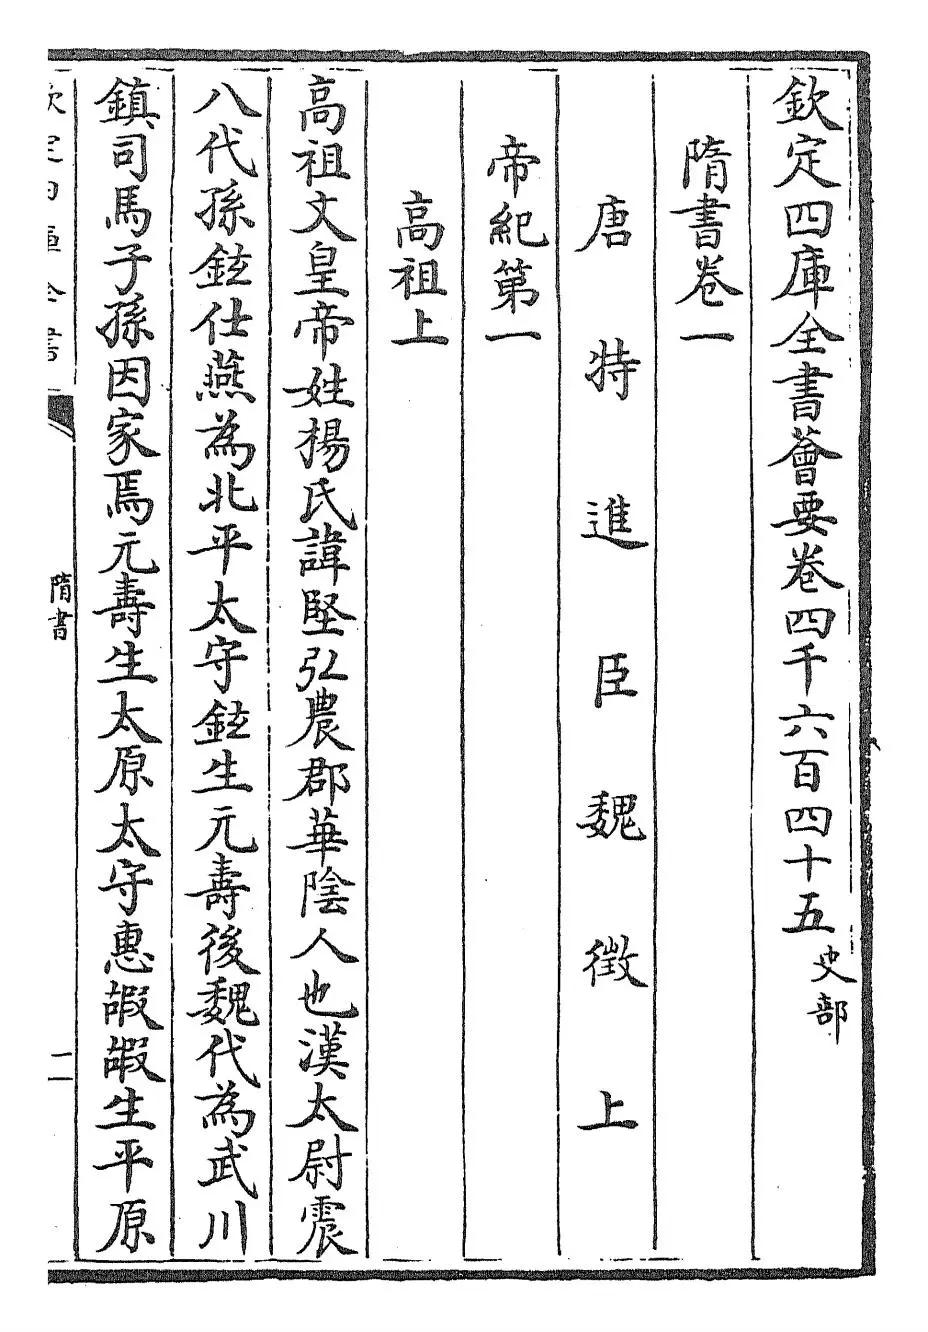 欽定四庫全書薈要卷四千六百四十五史部
隋書卷一
唐特進臣魏徵上
帝紀第一
高祖上
高祖文皇帝姓楊氏諱堅弘農郡華陰人也漢太尉震
八代孫鉉仕燕為北平太守鉉生元壽後魏代為武川
鎮司馬子孫因家焉元壽生太原太守惠嘏嘏生平原
欽定四庫全書
隋書
一